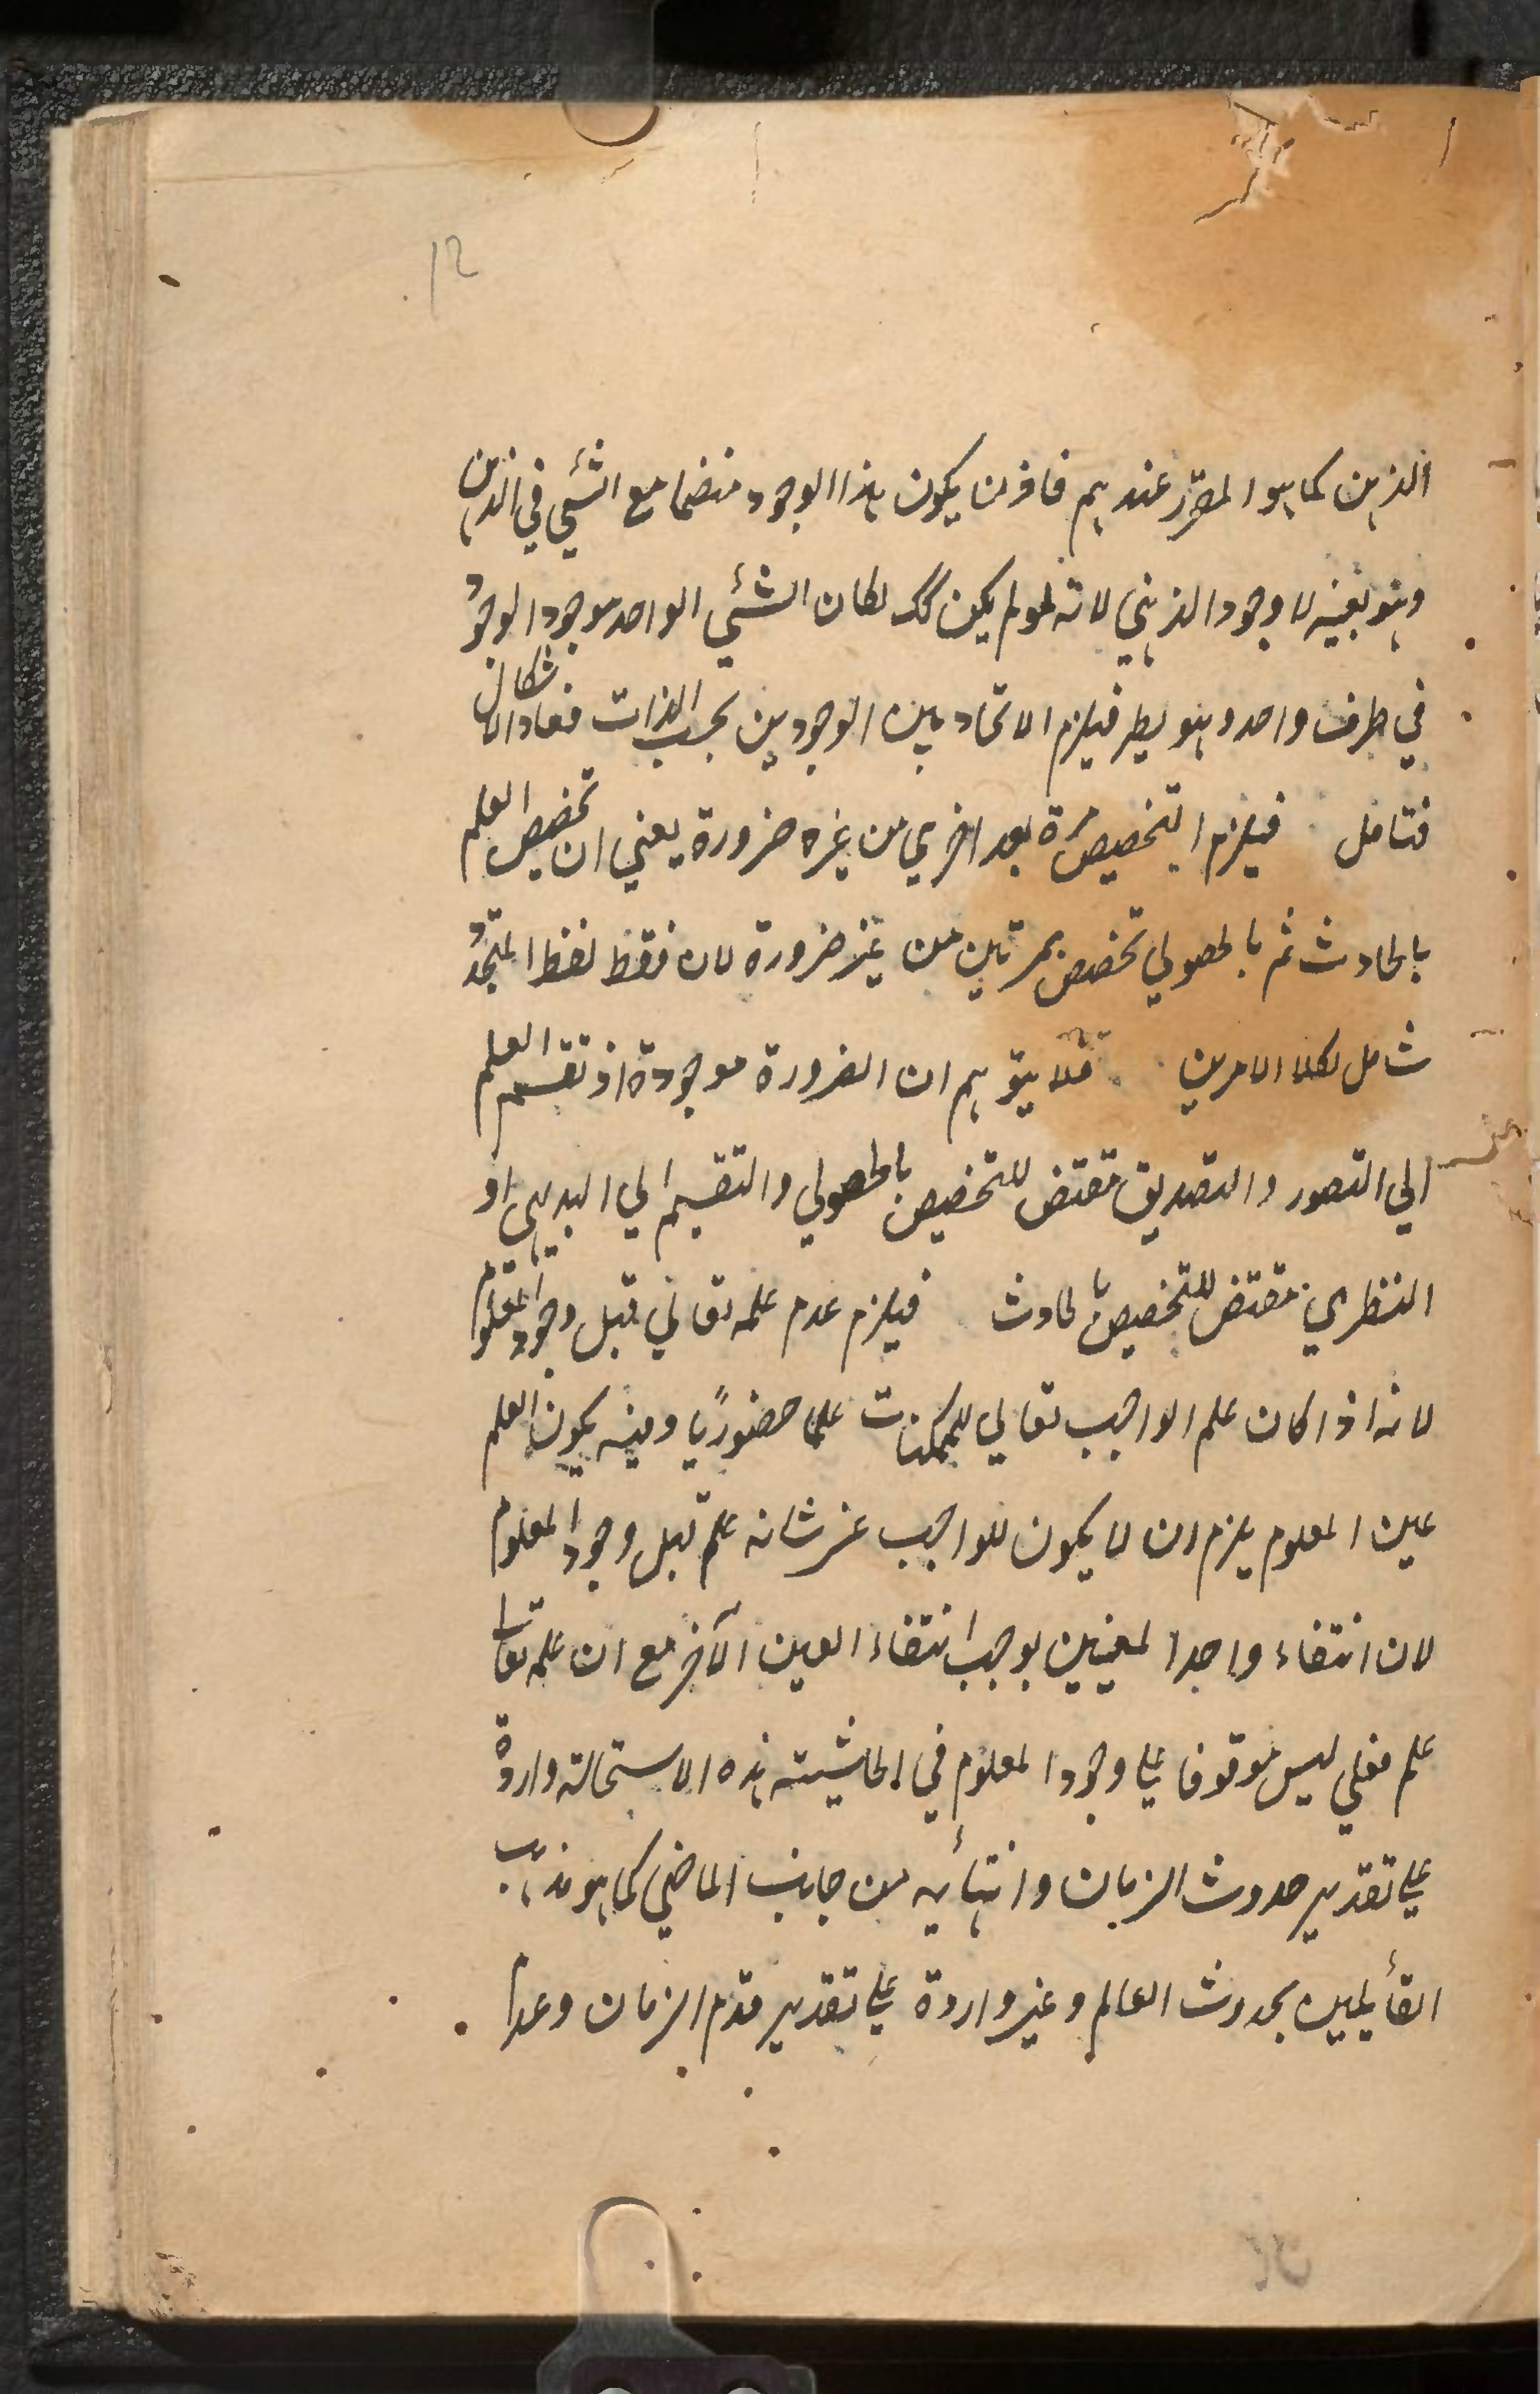 ١٢
الذهن كما هو المقرر عندهم فاذن يكون هذا الوجود منضما مع الشئي في الذهن
وهو بعينه لا وجود الذهني لانه لو لم يكن كك لكان الشئي الواحد موجودا لوجود
في ظرف واحد وهو بط فيلزم الاتحاد بين الوجودين بحسب الذات فعاد الاشكال
فتامل فيلزم التخصيص مرة بعد اخري من غيره ضرورة يعني ان تخصيص العلم
بالحادث ثم بالحصولي تخصيص بمرتين من غير ضرورة لان فقط لفظ المتجدد
شامل لكلا الامرين فلا يتوهم ان الضرورة موجودة اذ تقسيم العلم
الي التصور والتصديق مقتض للتخصيص بالحصولي والتقسيم الي البديهي او
النظري مقتض للتخصيص بالحادث فيلزم عدم علمه تعالي قبل وجود المعلوم
لانه اذا كان علم الواجب تعالي للممكنات علما حضوريا وفيه يكون العلم
عين المعلوم يلزم ان لا يكون للواجب عز شانه علم قبل وجود المعلوم
لان انتفاء واحد المعينين يوجب انتفاء العين الآخر مع ان علمه تعا
علم فعلي ليس موقوفا علي وجود المعلوم في الحاشيته هذه الاستحالة واردة
علي تقدير حدوث الزمان وانتهائه من جانب الماضي كما هو مذهب
القائلين بحدوث العالم وغير واردة علي تقدير قدم الزمان وعدم